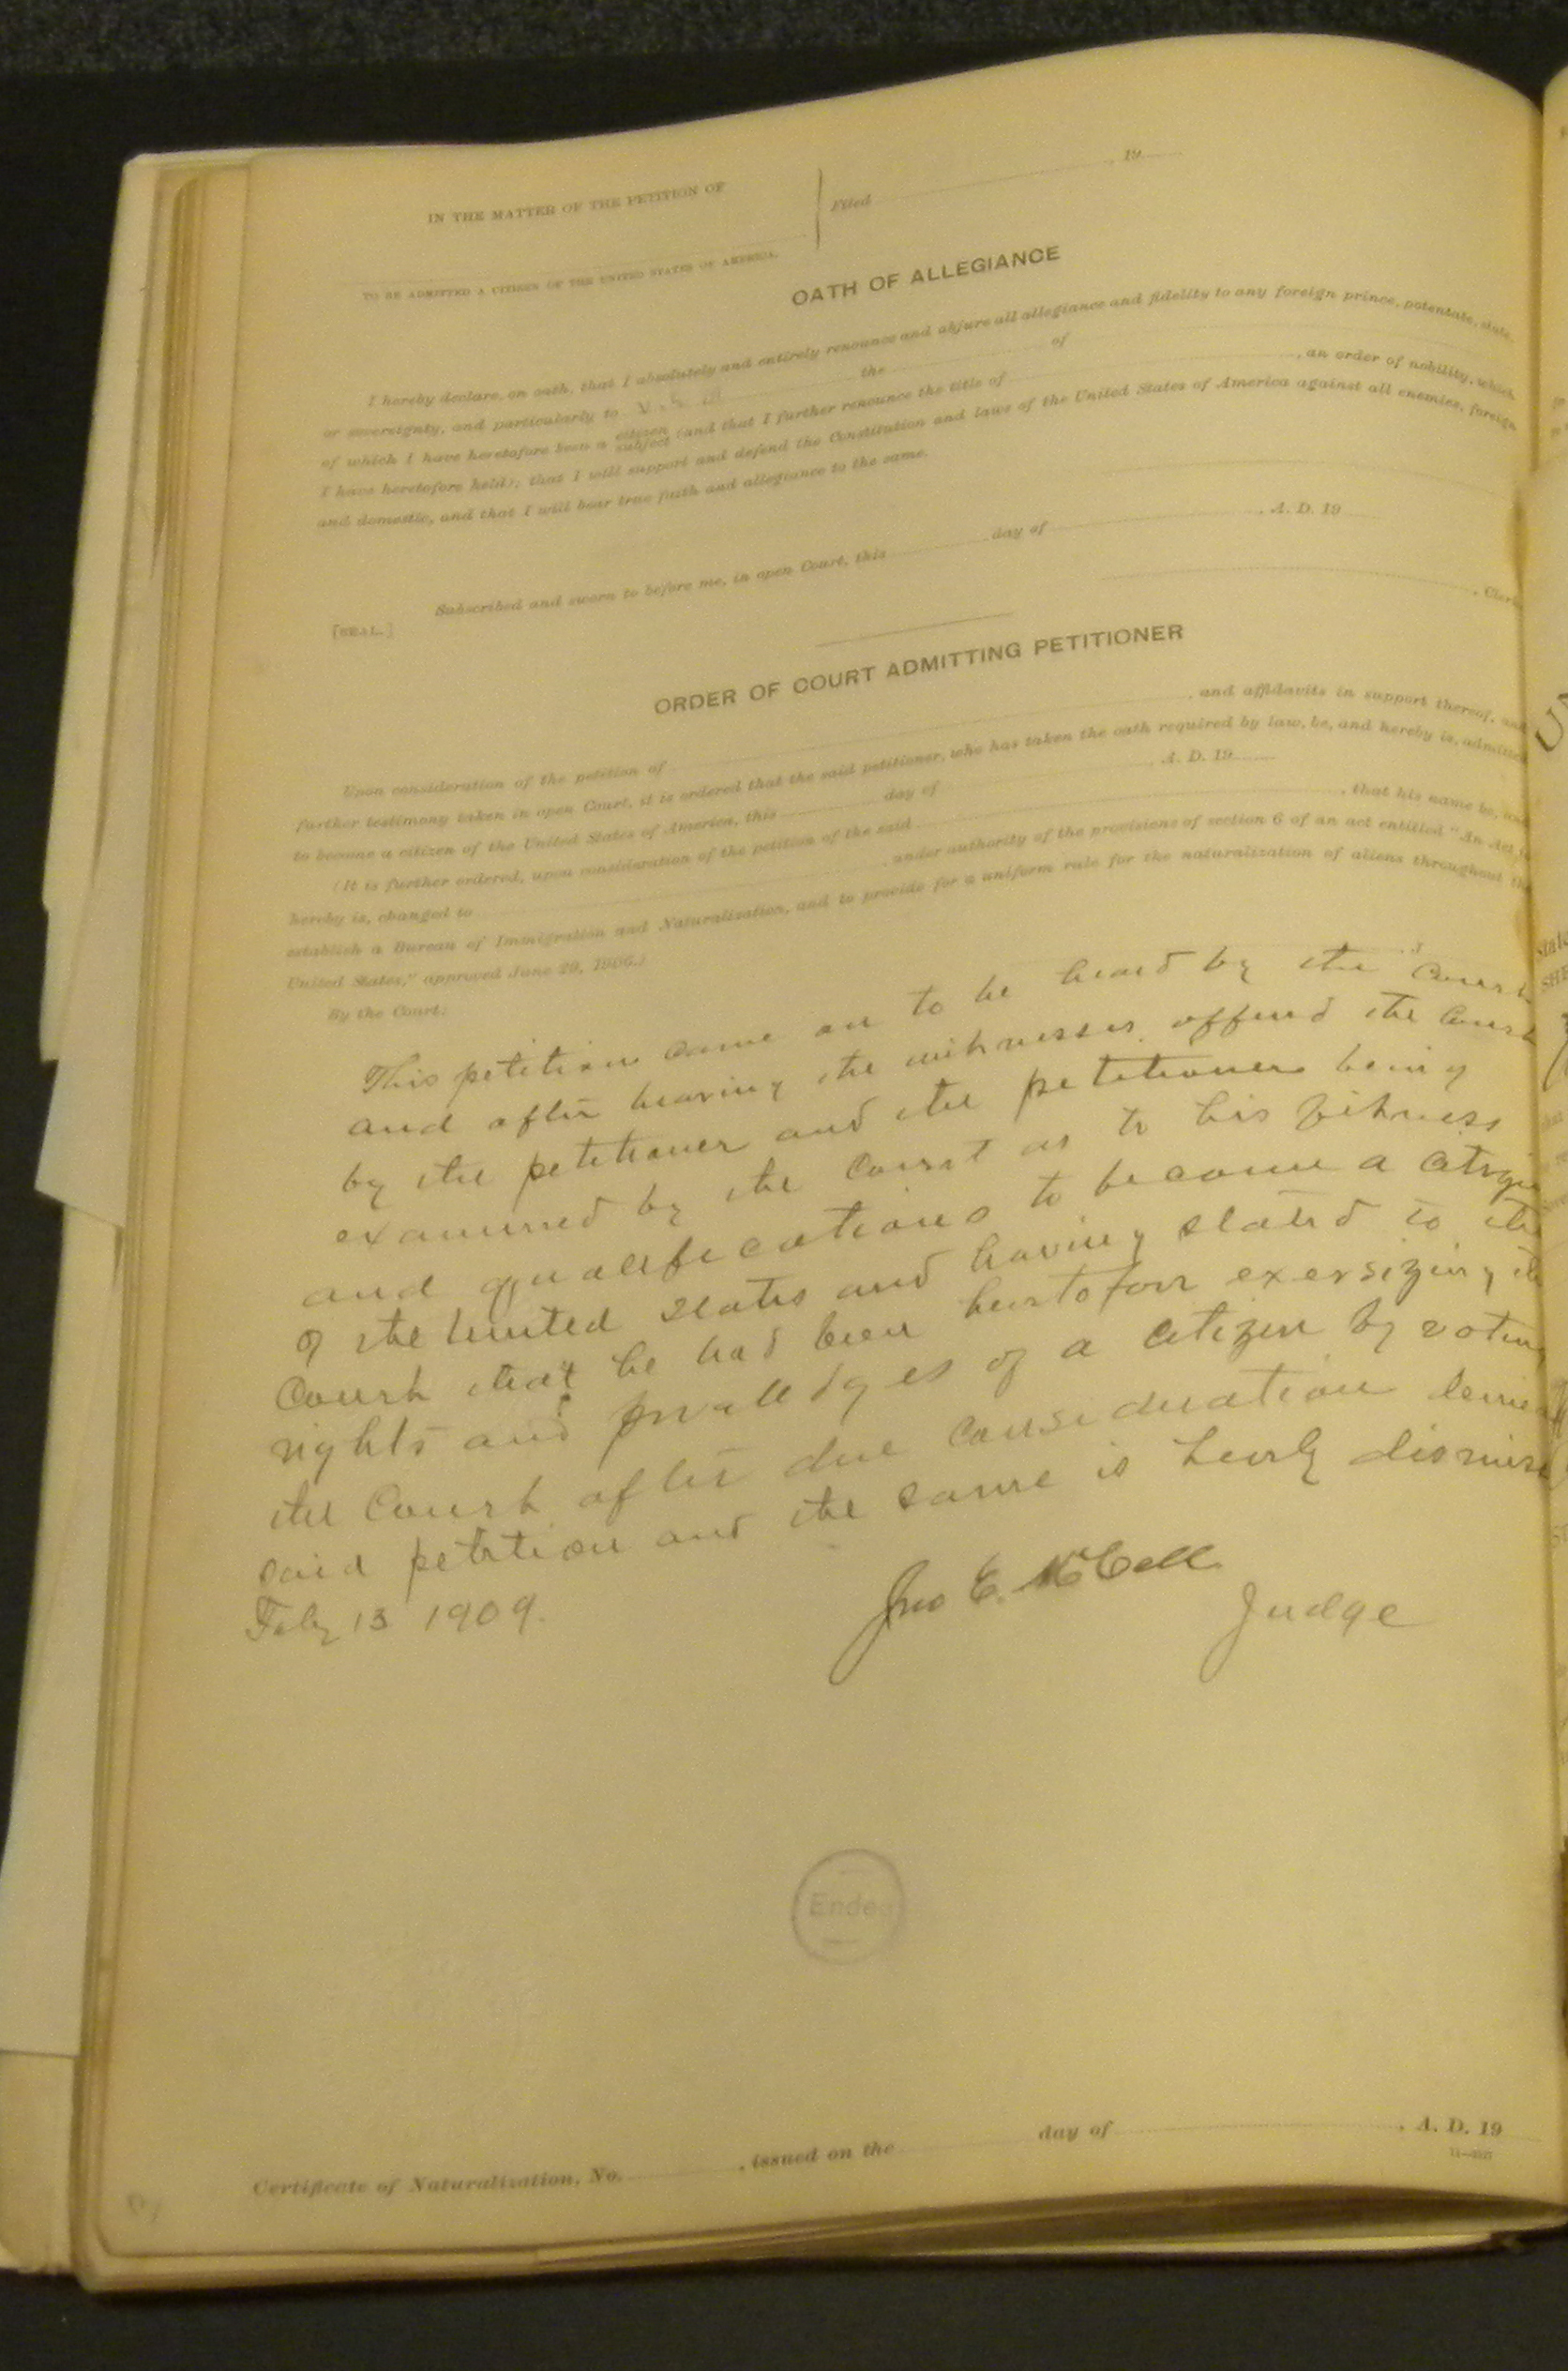 IN THE MATTER OF THE PETITION OF
Filed , 19
TO BE ADMITTED A CITIZEN OF THE UNITED STATES OF AMERICA.
OATH OF ALLEGIANCE
I hereby declare, on oath, that I absolutely and entirely renounce and abjure all allegiance and fidelity to any foreign prince, potentate, state,
or sovereignty, and particularly to the of
of which I have heretofore been a citizen subject (and that I further renounce the title of , an order of nobility, which
I have heretofore held); that I will support and defend the Constitution and laws of the United States of America against all enemies, foreign
and domestic, and that I will bear true faith and allegiance to the same.
Subscribed and sworn to before me, in open Court, this day of , A. D. 19
[SEAL.] , Clerk
ORDER OF COURT ADMITTING PETITIONER
Upon consideration of the petition of , and affidavits in support thereof, and
further testimony taken in open Court, it is ordered that the said petitioner, who has taken the oath required by law, be, and hereby is, admitted
to become a citizen of the United States of America, this day of , A. D. 19
(It is further ordered, upon consideration of the petition of the said , that his name be, and
hereby is, changed to , under authority of the provisions of section 6 of an act entitled "An Act to
establish a Bureau of Immigration and Naturalization, and to provide for a uniform rule for the naturalization of aliens throughout the
United States," approved June 29, 1906.)
By the Court:
This petition came on to be heard by the Court
and after hearing the witnesses offered the Court
by the petitioner and the petitioner being
examined by the Court as to his fitness
and qualifications to become a
of the United States and having stated to the
Court that he had been heretofore exersizing the
rights and of a citizen by voting
the Court after due consideration
said petition and the same is hereby
Feby 13 1909.
Jno E. McCall
Judge
Ended
Certificate of Naturalization, No. , issued on the day of , A. D. 19